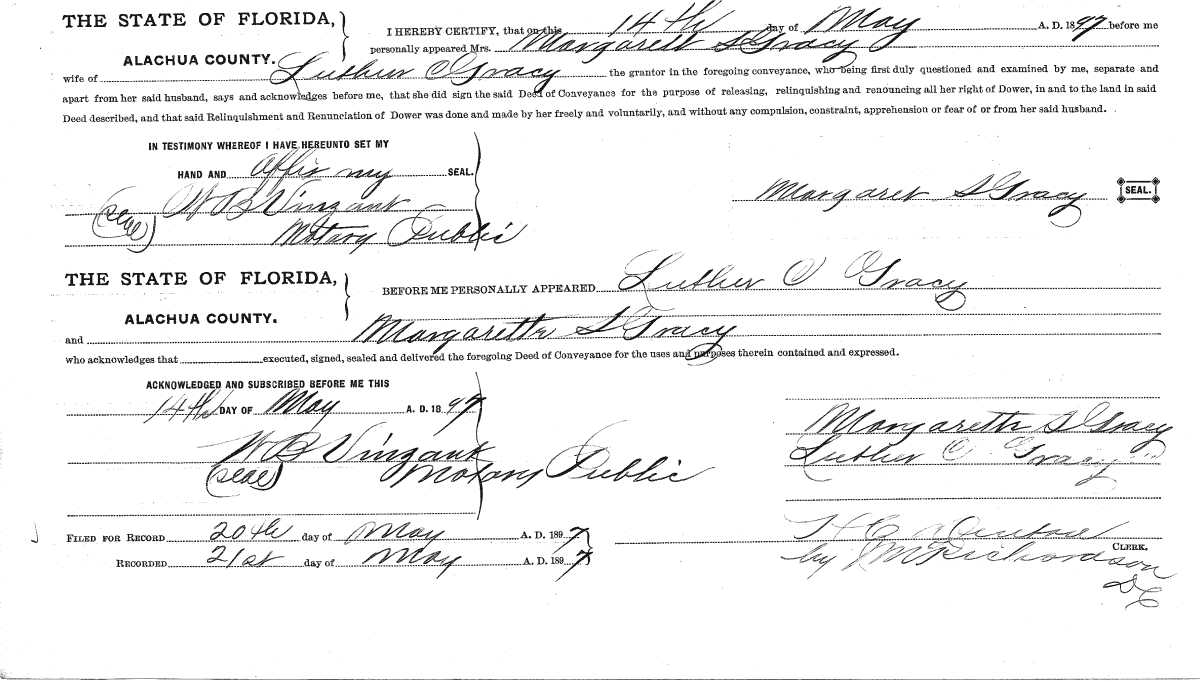 THE STATE OF FLORIDA,
ALACHUA COUNTY.
I HEREBY CERTIFY, that on this 14th day of May A. D. 1897 before me
personally appeared Mrs. Margarett S Gracy
wife of Luther C Gracy the grantor in the foregoing conveyance, who being first duly questioned and examined by me, separate and
apart from her said husband, says and acknowledges before me, that she did sign the said Deed of Conveyance for the purpose of releasing, relinquishing and renouncing all her right of Dower, in and to the land in said
Deed described, and that said Relinquishment and Renunciation of Dower was done and made by her freely and voluntarily, and without any compulsion, constraint, apprehension or fear of or from her said husband.
IN TESTIMONY WHEREOF I HAVE HEREUNTO SET MY
HAND AND Affix my SEAL.
W B Vinzant
(seal) Notary Public
Margaret S Gracy SEAL.
THE STATE OF FLORIDA,
ALACHUA COUNTY.
BEFORE ME PERSONALLY APPEARED Luther C Gracy
and Margareth S Gracy
who acknowledges that executed, signed, sealed and delivered the foregoing Deed of Conveyance for the uses and purposes therein contained and expressed.
ACKNOWLEDGED AND SUBSCRIBED BEFORE ME THIS
14th DAY OF May A. D. 1897
W B Vinzant
(seal) Notary Public
Margareth S Gracy
Luther C Gracy
FILED FOR RECORD 20th day of May A. D. 1897
RECORDED 21st day of May A. D. 1897
H C CLERK.
by J M Richardson
D C